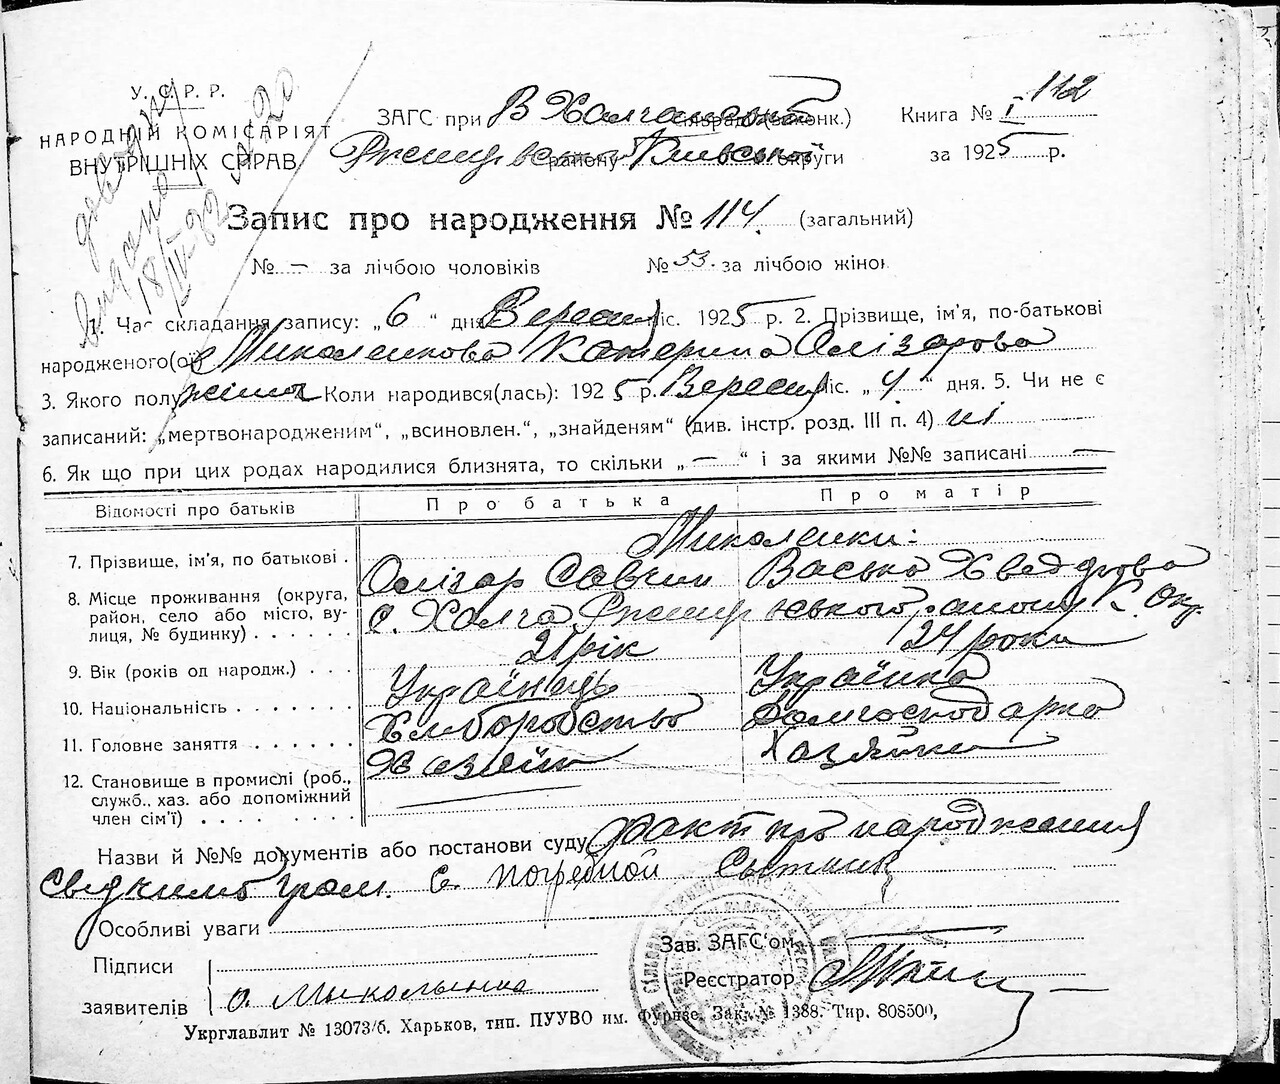 У. С. Р. Р.
НАРОДНІЙ КОМІСАРІЯТ
ВНУТРІШНІХ СПРАВ
видано
18/IV-82
ЗАГС при В Халчанської сільраді (виконк.)
Ржищівського району Київської округи
Книга № I 112
за 1925 р.
Запис про народження № 114. (загальний)
№ — за лічбою чоловіків № 53. за лічбою жінок
1. Час складання запису: „6“ дня Вересня міс. 1925 р. 2. Прізвище, ім'я, по-батькові
народженого(ої) Миколенкова Катерина Олізарова
3. Якого полу жіноч Коли народився(лась): 1925 р. Вересня міс. „4“ дня. 5. Чи не є
записаний: „мертвонародженим“, „всиновлен.“, „знайденям“ (див. інстр. розд. III п. 4) ні
6. Як що при цих родах народилися близнята, то скільки „—“ і за якими №№ записані —
Відомості про батьків Про батька Про матір
Миколенки:
7. Прізвище, ім'я, по батькові . Олізар Савчин Васька Хведорова
8. Місце проживання (округа, район, село або місто, вулиця, № будинку) . . . . . . с. Халча Ржищівського району К. Окр
9. Вік (років од народж.) . . . 21 рік 24 роки
10. Національність . . . . . . . Українець Українка
11. Головне заняття . . . . . . Хліборобство Домгосподарка
12. Становище в промислі (роб., служб., хаз. або допоміжний член сім'ї) . . . . . . . Хазяїн Хазяйка
Назви й №№ документів або постанови суду Факт про народження
свідчить гром. с. Погребной
Особливі уваги
Підписи
заявителів О. Мыколынко
Зав. ЗАГС'ом
Реєстратор
Укрглавлит № 13073/б. Харьков, тип. ПУУВО им. Фрунзе. Зак. № 1388. Тир. 808500,